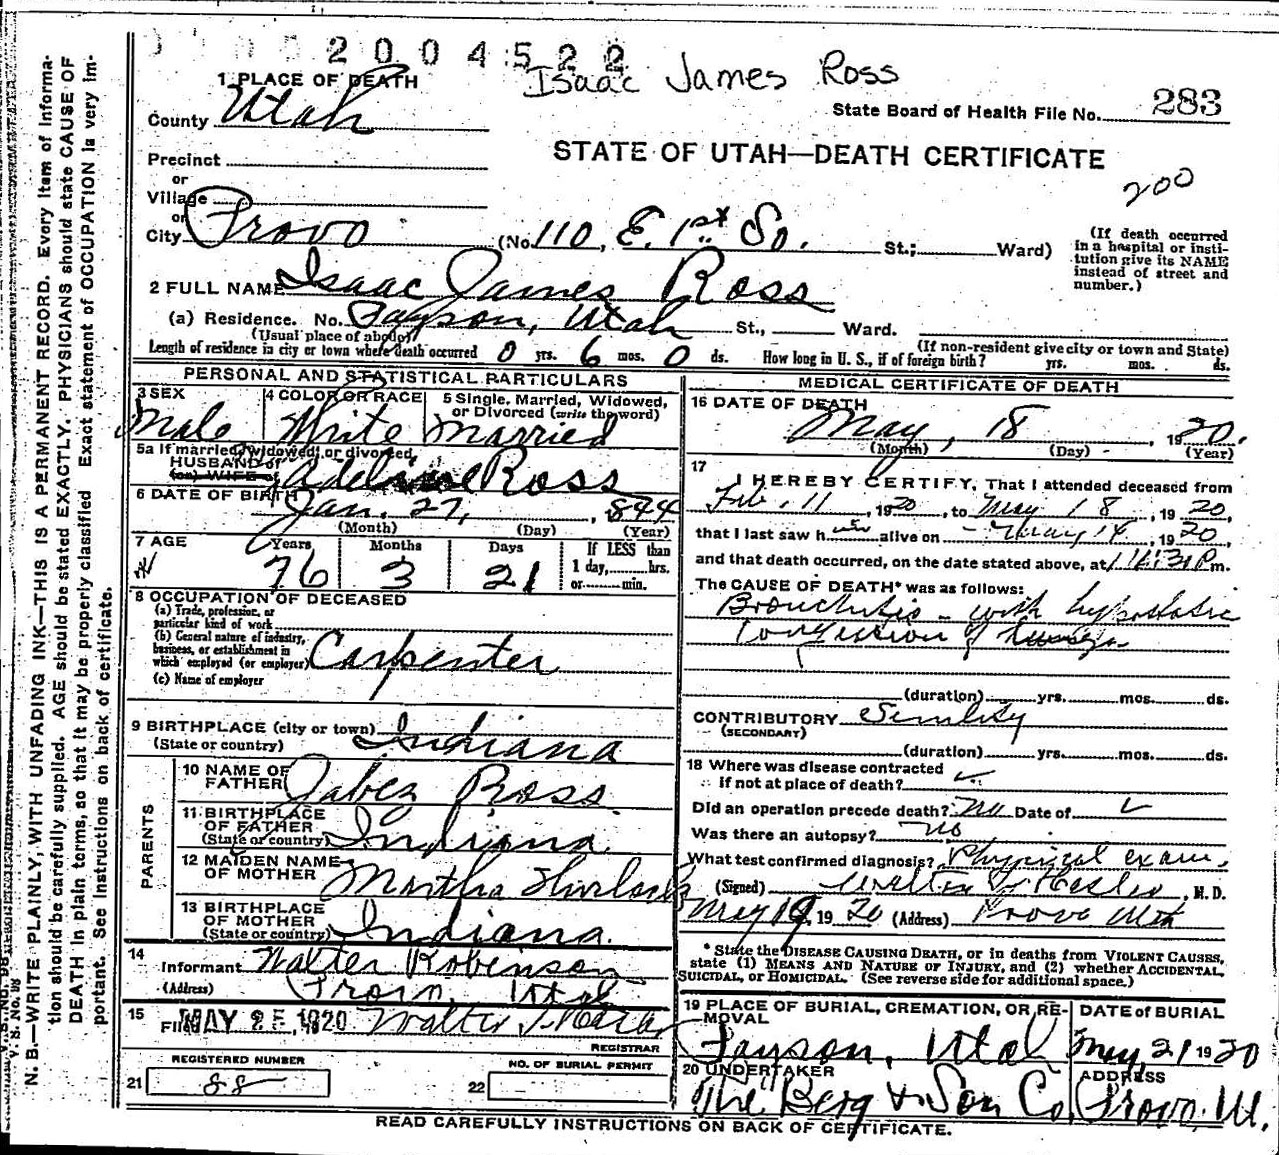 2004522
Isaac James Ross
State Board of Health File No. 283
STATE OF UTAH—DEATH CERTIFICATE
200
1 PLACE OF DEATH
County Utah
Precinct
or
Village
or
City Provo (No. 110, E. 1st So. St.; Ward)
(If death occurred in a hospital or institution give its NAME instead of street and number.)
2 FULL NAME Isaac James Ross
(a) Residence. No. Payson, Utah St., Ward.
(Usual place of abode) (If non-resident give city or town and State)
Length of residence in city or town where death occurred 0 yrs. 6 mos. 0 ds. How long in U. S., if of foreign birth? yrs. mos. ds.
PERSONAL AND STATISTICAL PARTICULARS
3 SEX 4 COLOR OR RACE 5 Single, Married, Widowed, or Divorced (write the word)
Male White Married
5a If married, widowed, or divorced
HUSBAND of
(or) WIFE of Adeline Ross
6 DATE OF BIRTH Jan. 27, 1844
(Month) (Day) (Year)
7 AGE Years Months Days If LESS than
1 day, hrs.
or min.
76 3 21
8 OCCUPATION OF DECEASED
(a) Trade, profession, or
particular kind of work
(b) General nature of industry,
business, or establishment in
which employed (or employer) Carpenter
(c) Name of employer
9 BIRTHPLACE (city or town)
(State or country) Indiana
PARENTS
10 NAME OF
FATHER Jabez Ross
11 BIRTHPLACE
OF FATHER
(State or country) Indiana
12 MAIDEN NAME
OF MOTHER Martha
13 BIRTHPLACE
OF MOTHER
(State or country) Indiana
14
Informant Walter Robinson
(Address) Provo, Utah
15
Filed MAY 25, 1920 Walter T. Hasler
REGISTRAR
REGISTERED NUMBER
21 88
NO. OF BURIAL PERMIT
22
MEDICAL CERTIFICATE OF DEATH
16 DATE OF DEATH
May, 18, 1920.
(Month) (Day) (Year)
17
I HEREBY CERTIFY, That I attended deceased from
Feb. 11, 1920, to May 18, 1920,
that I last saw him alive on May 14, 1920,
and that death occurred, on the date stated above, at m.
The CAUSE OF DEATH* was as follows:
Bronchitis - with hypostatic
congestion of lungs.
(duration) yrs. mos. ds.
CONTRIBUTORY Senility
(SECONDARY)
(duration) yrs. mos. ds.
18 Where was disease contracted
if not at place of death?
Did an operation precede death? No Date of
Was there an autopsy? No
What test confirmed diagnosis? Physical exam.
(Signed) Walter T. Hasler, M. D.
May 19, 1920 (Address) Provo Utah
* State the DISEASE CAUSING DEATH, or in deaths from VIOLENT CAUSES,
state (1) MEANS AND NATURE OF INJURY, and (2) whether ACCIDENTAL,
SUICIDAL, or HOMICIDAL. (See reverse side for additional space.)
19 PLACE OF BURIAL, CREMATION, OR RE-
MOVAL
Payson, Utah
DATE of BURIAL
May 21 1920
20 UNDERTAKER
The Berg & Son Co.
ADDRESS
Provo, U.
READ CAREFULLY INSTRUCTIONS ON BACK OF CERTIFICATE.
V. S. No. 98
N. B.—WRITE PLAINLY, WITH UNFADING INK—THIS IS A PERMANENT RECORD. Every item of Informa-
tion should be carefully supplied. AGE should be stated EXACTLY. PHYSICIANS should state CAUSE OF
DEATH in plain terms, so that it may be properly classified Exact statement of OCCUPATION is very im-
portant. See instructions on back of certificate.